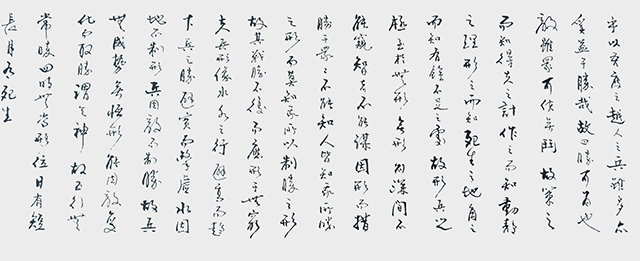 乎以吾度之越人之兵雖多亦
奚益于勝哉故曰勝可為也
敵雖眾可使無鬥故策之
而知得失之計作之而知動靜
之理形之而知死生之地角之
而知有餘不足之處故形兵之
極至於無形無形則深間不
能窺智者不能謀因形而措
勝于眾眾不能知人皆知我所勝
之形而莫知吾所以制勝之形
故其戰勝不復而應形于無窮
夫兵形象水水之行避高而趨
下兵之勝避實而擊虛水因
地而制形兵因敵而制勝故兵
無成勢無恆形能因敵變
化而取勝謂之神故五行無
常勝四時無常位日有短
長月有死生